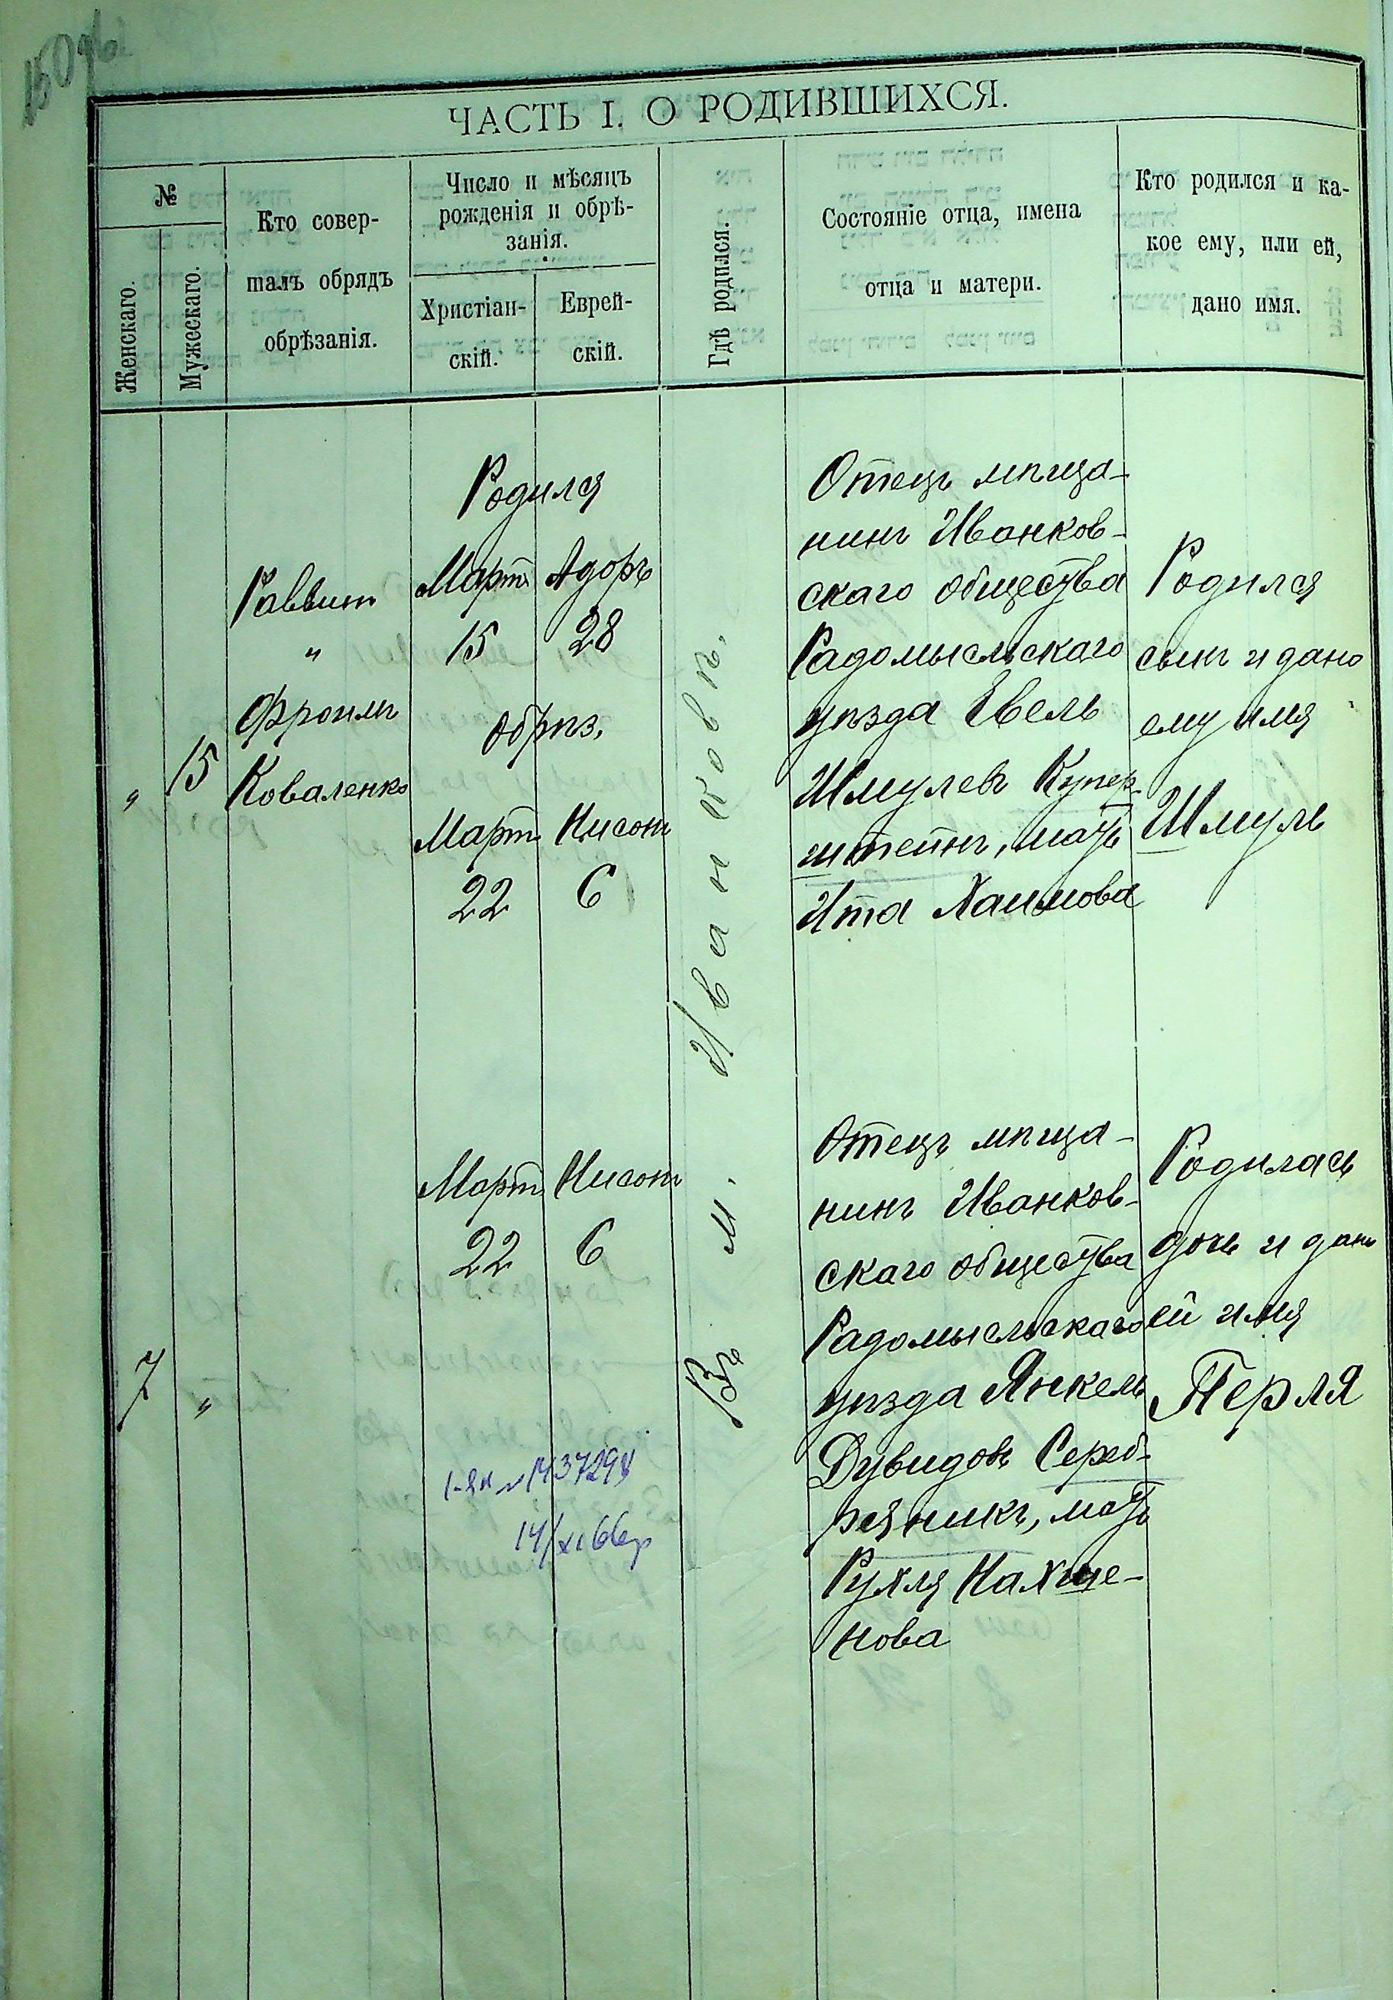 ЧАСТЬ I. О РОДИВШИХСЯ.
№
Женскаго.
Мужескаго.
Кто совер-
шалъ обрядъ
обрѣзанія.
Число и мѣсяцъ
рожденія и обрѣ-
занія.
Христіан-
скій.
Еврей-
скій.
Гдѣ родился.
Состояніе отца, имена
отца и матери.
Кто родился и ка-
кое ему, или ей,
дано имя.
"
15
Раввин
"
Фроимъ
Коваленко
Родился
Март Адоръ
15 28
обрѣз.
Март Нисонъ
22 6
Въ м. Иванковѣ.
Отецъ мѣща-
нинъ Иванков-
скаго общества
Радомысльскаго
уѣзда Евель
Шмулевъ Купер-
штейнъ, мать
Ита Хаимова
Родился
сынъ и дано
ему имя
Шмуль
7
"
Март Нисонъ
22 6
Отецъ мѣща-
нинъ Иванков-
скаго общества
Радомысльскаго
уѣзда Янкель
Дувидовъ Сереб-
реникъ, мать
Рухля Нахше-
нова
Родилась
дочь и дано
ей имя
Перля